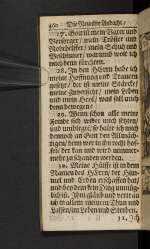 460 Die Neueste Andacht,
27. Gott ist mein Vater und
Versorger/ mein Tröster und
Nothhelffer/ mein Schutz und
Beschirmer/ wie und wovor solt ich
mich denn fürchten.
28. In den HErrn habe ich
meine Hoffnung und Trauen
gesetzt/ der ist meine Stärcke/
meine Zuversicht/ mein Leben
und mein Heyl/ was soll mich
denn bewegen?
29. Wenn schon alle meine
Feinde sich wider mich setzen/
und umblegen/ so halte ich mich
dennoch an Gott den Allmächtigen/
denn wer in ihn trauet
der kan und wird nimmermehr
zu Schanden werden.
30. Meine Hülffe ist in dem
Namen des HErrn/ der Himmel
und Erden erschaffen hat/
und bey dem kein Ding unmöglich
ist. Ihm glaube und traue
ich in allem meinem Thun und
Lassen/ im Leben und Sterben.
31.